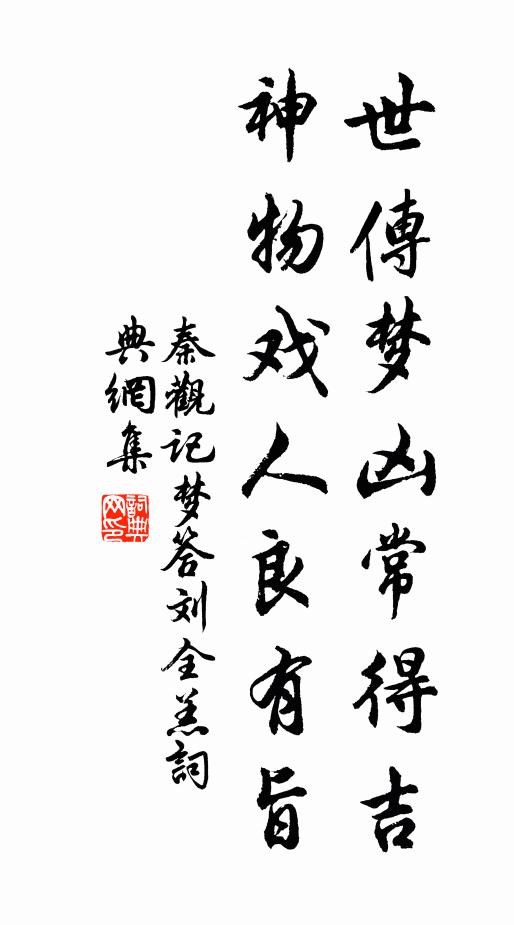 世傳梦凶常得吉
神物戏人良有旨
秦觀记梦答刘全羔詞
典網集
詞典网印